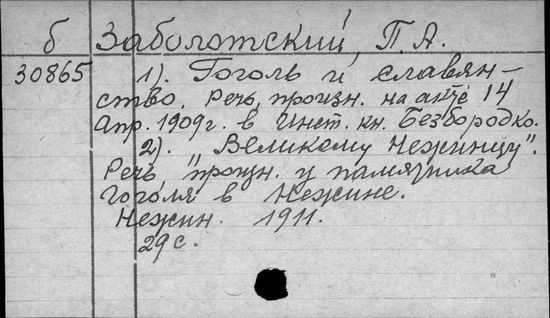 б Заболотский, П. А.
30865 1). Гоголь и славян-
ство. Речь, произн. на акте 14
Апр. 1909 г. в Инст. кн. Безбородко.
2). "Великому Нежинцу".
Речь произн. у памятника
Гоголя в Нежине.
Нежин. 1911.
29 с.